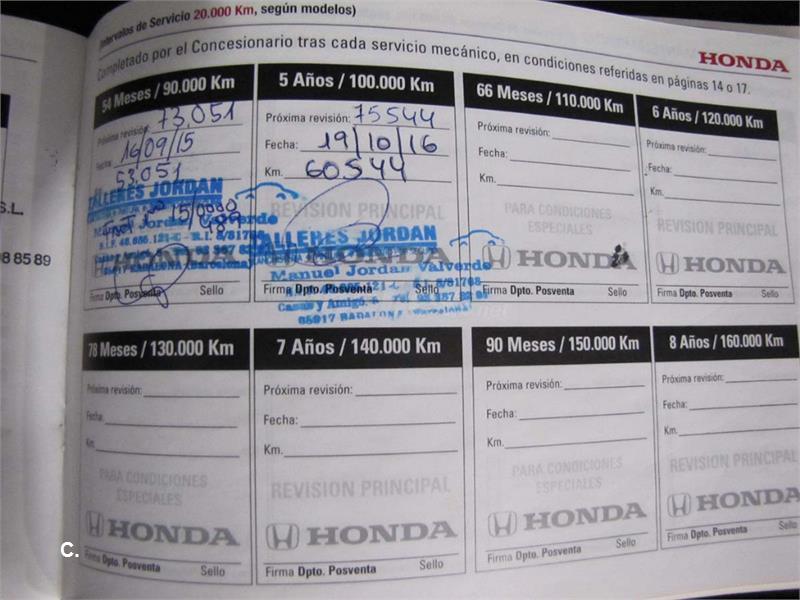 Intervalos de Servicio 20.000 Km, según modelos)
Completado por el Concesionario tras cada servicio mecánico, en condiciones referidas en páginas 14 o 17.
HONDA
54 Meses / 90.000 Km
Próxima revisión: 73.051
Fecha: 16/09/15
53.051
TALLERES JORDAN
Manuel Jordan Valverde
HONDA
Firma Dpto. Posventa Sello
5 Años / 100.000 Km
Próxima revisión: 75544
Fecha: 19/10/16
Km. 60.544
REVISION PRINCIPAL
TALLERES JORDAN
HONDA
Manuel Jordan Valverde
Firma Dpto. Posventa Sello
66 Meses / 110.000 Km
Próxima revisión:
Fecha:
Km.
PARA CONDICIONES
ESPECIALES
HONDA
Firma Dpto. Posventa Sello
6 Años / 120.000 Km
Próxima revisión:
Fecha:
Km.
REVISION PRINCIPAL
HONDA
Firma Dpto. Posventa Sello
S.L.
98 85 89
78 Meses / 130.000 Km
Próxima revisión:
Fecha:
Km.
PARA CONDICIONES
ESPECIALES
HONDA
Firma Dpto. Posventa Sello
7 Años / 140.000 Km
Próxima revisión:
Fecha:
Km.
REVISION PRINCIPAL
HONDA
Firma Dpto. Posventa Sello
90 Meses / 150.000 Km
Próxima revisión:
Fecha:
Km.
PARA CONDICIONES
ESPECIALES
HONDA
Firma Dpto. Posventa Sello
8 Años / 160.000 Km
Próxima revisión:
Fecha:
Km.
REVISION PRINCIPAL
HONDA
Firma Dpto. Posventa Sello
C.